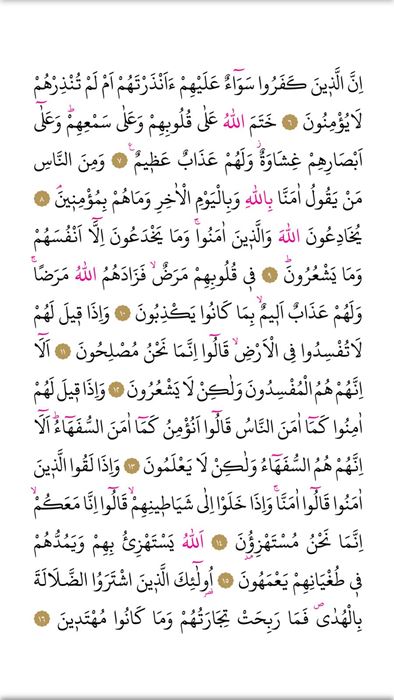 اِنَّ الَّذ۪ينَ كَفَرُوا سَوَٓاءٌ عَلَيْهِمْ ءَاَنْذَرْتَهُمْ اَمْ لَمْ تُنْذِرْهُمْ
لَا يُؤْمِنُونَ ﴿٦﴾ خَتَمَ اللّٰهُ عَلٰى قُلُوبِهِمْ وَعَلٰى سَمْعِهِمْۜ وَعَلٰٓى
اَبْصَارِهِمْ غِشَاوَةٌۘ وَلَهُمْ عَذَابٌ عَظ۪يمٌ۟ ﴿٧﴾ وَمِنَ النَّاسِ
مَنْ يَقُولُ اٰمَنَّا بِاللّٰهِ وَبِالْيَوْمِ الْاٰخِرِ وَمَاهُمْ بِمُؤْمِن۪ينَۢ ﴿٨﴾
يُخَادِعُونَ اللّٰهَ وَالَّذ۪ينَ اٰمَنُواۚ وَمَا يَخْدَعُونَ اِلَّٓا اَنْفُسَهُمْ
وَمَا يَشْعُرُونَۜ ﴿٩﴾ ف۪ي قُلُوبِهِمْ مَرَضٌۙ فَزَادَهُمُ اللّٰهُ مَرَضًاۚ
وَلَهُمْ عَذَابٌ اَل۪يمٌۙ بِمَا كَانُوا يَكْذِبُونَ ﴿١٠﴾ وَاِذَا ق۪يلَ لَهُمْ
لَا تُفْسِدُوا فِي الْاَرْضِۙ قَالُٓوا اِنَّمَا نَحْنُ مُصْلِحُونَ ﴿١١﴾ اَلَٓا
اِنَّهُمْ هُمُ الْمُفْسِدُونَ وَلٰكِنْ لَا يَشْعُرُونَ ﴿١٢﴾ وَاِذَا ق۪يلَ لَهُمْ
اٰمِنُوا كَمَٓا اٰمَنَ النَّاسُ قَالُٓوا اَنُؤْمِنُ كَمَٓا اٰمَنَ السُّفَهَٓاءُۜ اَلَٓا
اِنَّهُمْ هُمُ السُّفَهَٓاءُ وَلٰكِنْ لَا يَعْلَمُونَ ﴿١٣﴾ وَاِذَا لَقُوا الَّذ۪ينَ
اٰمَنُوا قَالُٓوا اٰمَنَّاۚ وَاِذَا خَلَوْا اِلٰى شَيَاط۪ينِهِمْۙ قَالُٓوا اِنَّا مَعَكُمْۙ
اِنَّمَا نَحْنُ مُسْتَهْزِؤُ۫نَ ﴿١٤﴾ اَللّٰهُ يَسْتَهْزِئُ بِهِمْ وَيَمُدُّهُمْ
ف۪ي طُغْيَانِهِمْ يَعْمَهُونَ ﴿١٥﴾ اُو۬لٰٓئِكَ الَّذ۪ينَ اشْتَرَوُا الضَّلَالَةَ
بِالْهُدٰىۖ فَمَا رَبِحَتْ تِجَارَتُهُمْ وَمَا كَانُوا مُهْتَد۪ينَ ﴿١٦﴾